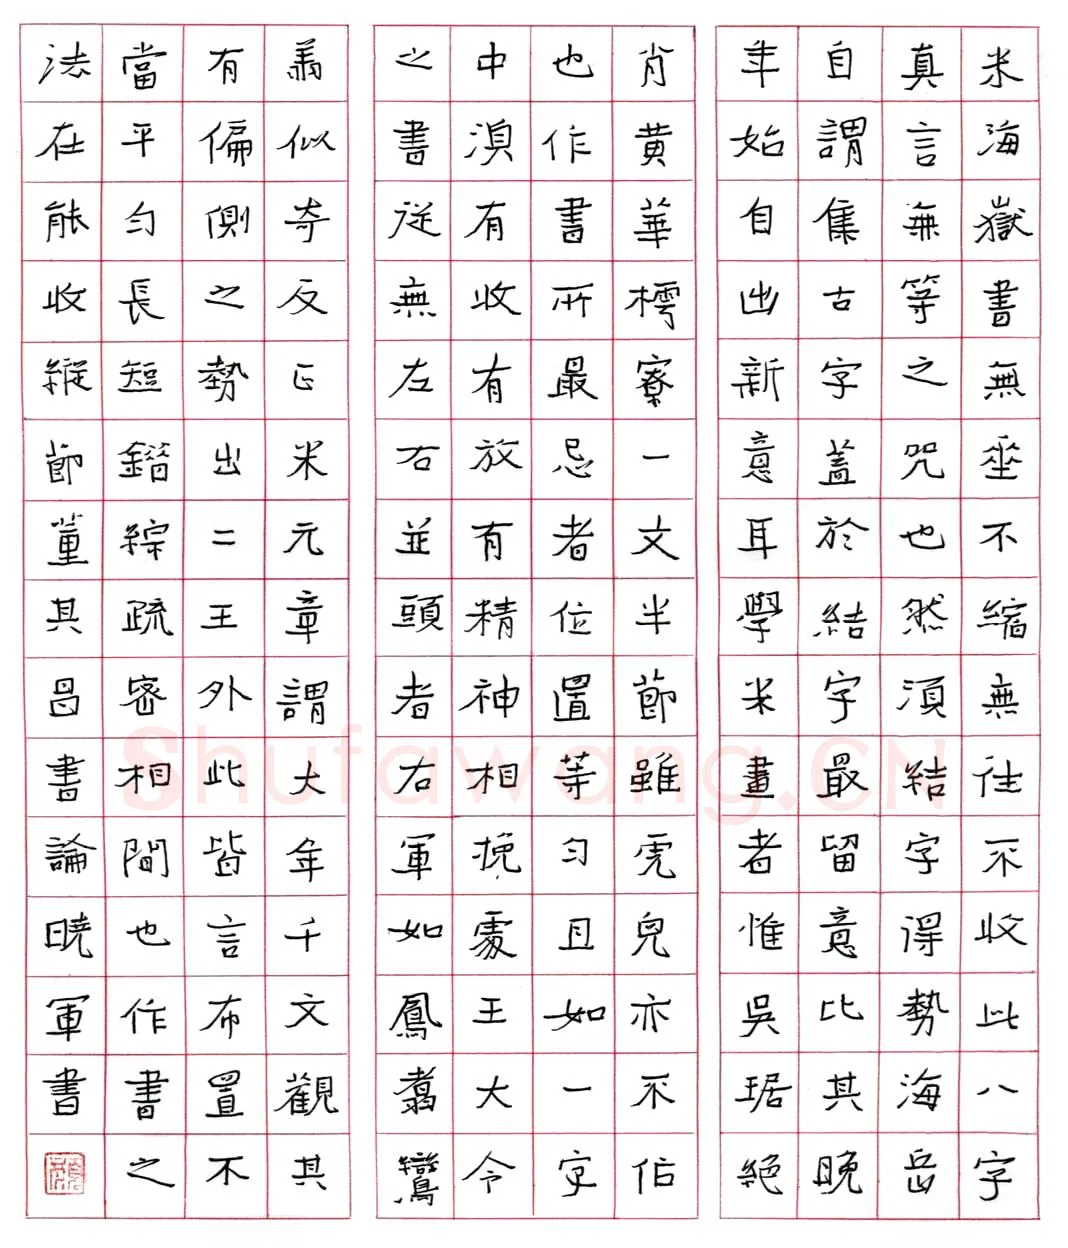 米海嶽書無垂不縮無往不收此八字
真言無等之咒也然須結字得勢海岳
自謂集古字蓋於結字最留意比其晚
年始自出新意耳學米書者惟吳琚絕
肖黄華樗寮一文半節雖虎兒亦不佔
也作書所最忌者位置等勻且如一字
中湏有收有放有精神相挽處王大令
之書從無左右並頭者右軍如鳳翥鸞
翔似奇反正米元章謂大年千文觀其
有偏側之勢出二王外此皆言布置不
當平勻長短錯綜疏密相間也作書之
法在能收縱節董其昌書論曉軍書
Shufawang.CN